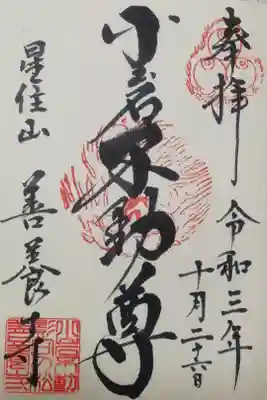 奉拝 令和三年
十月二十六日
小岩不動尊
星住山
善養寺